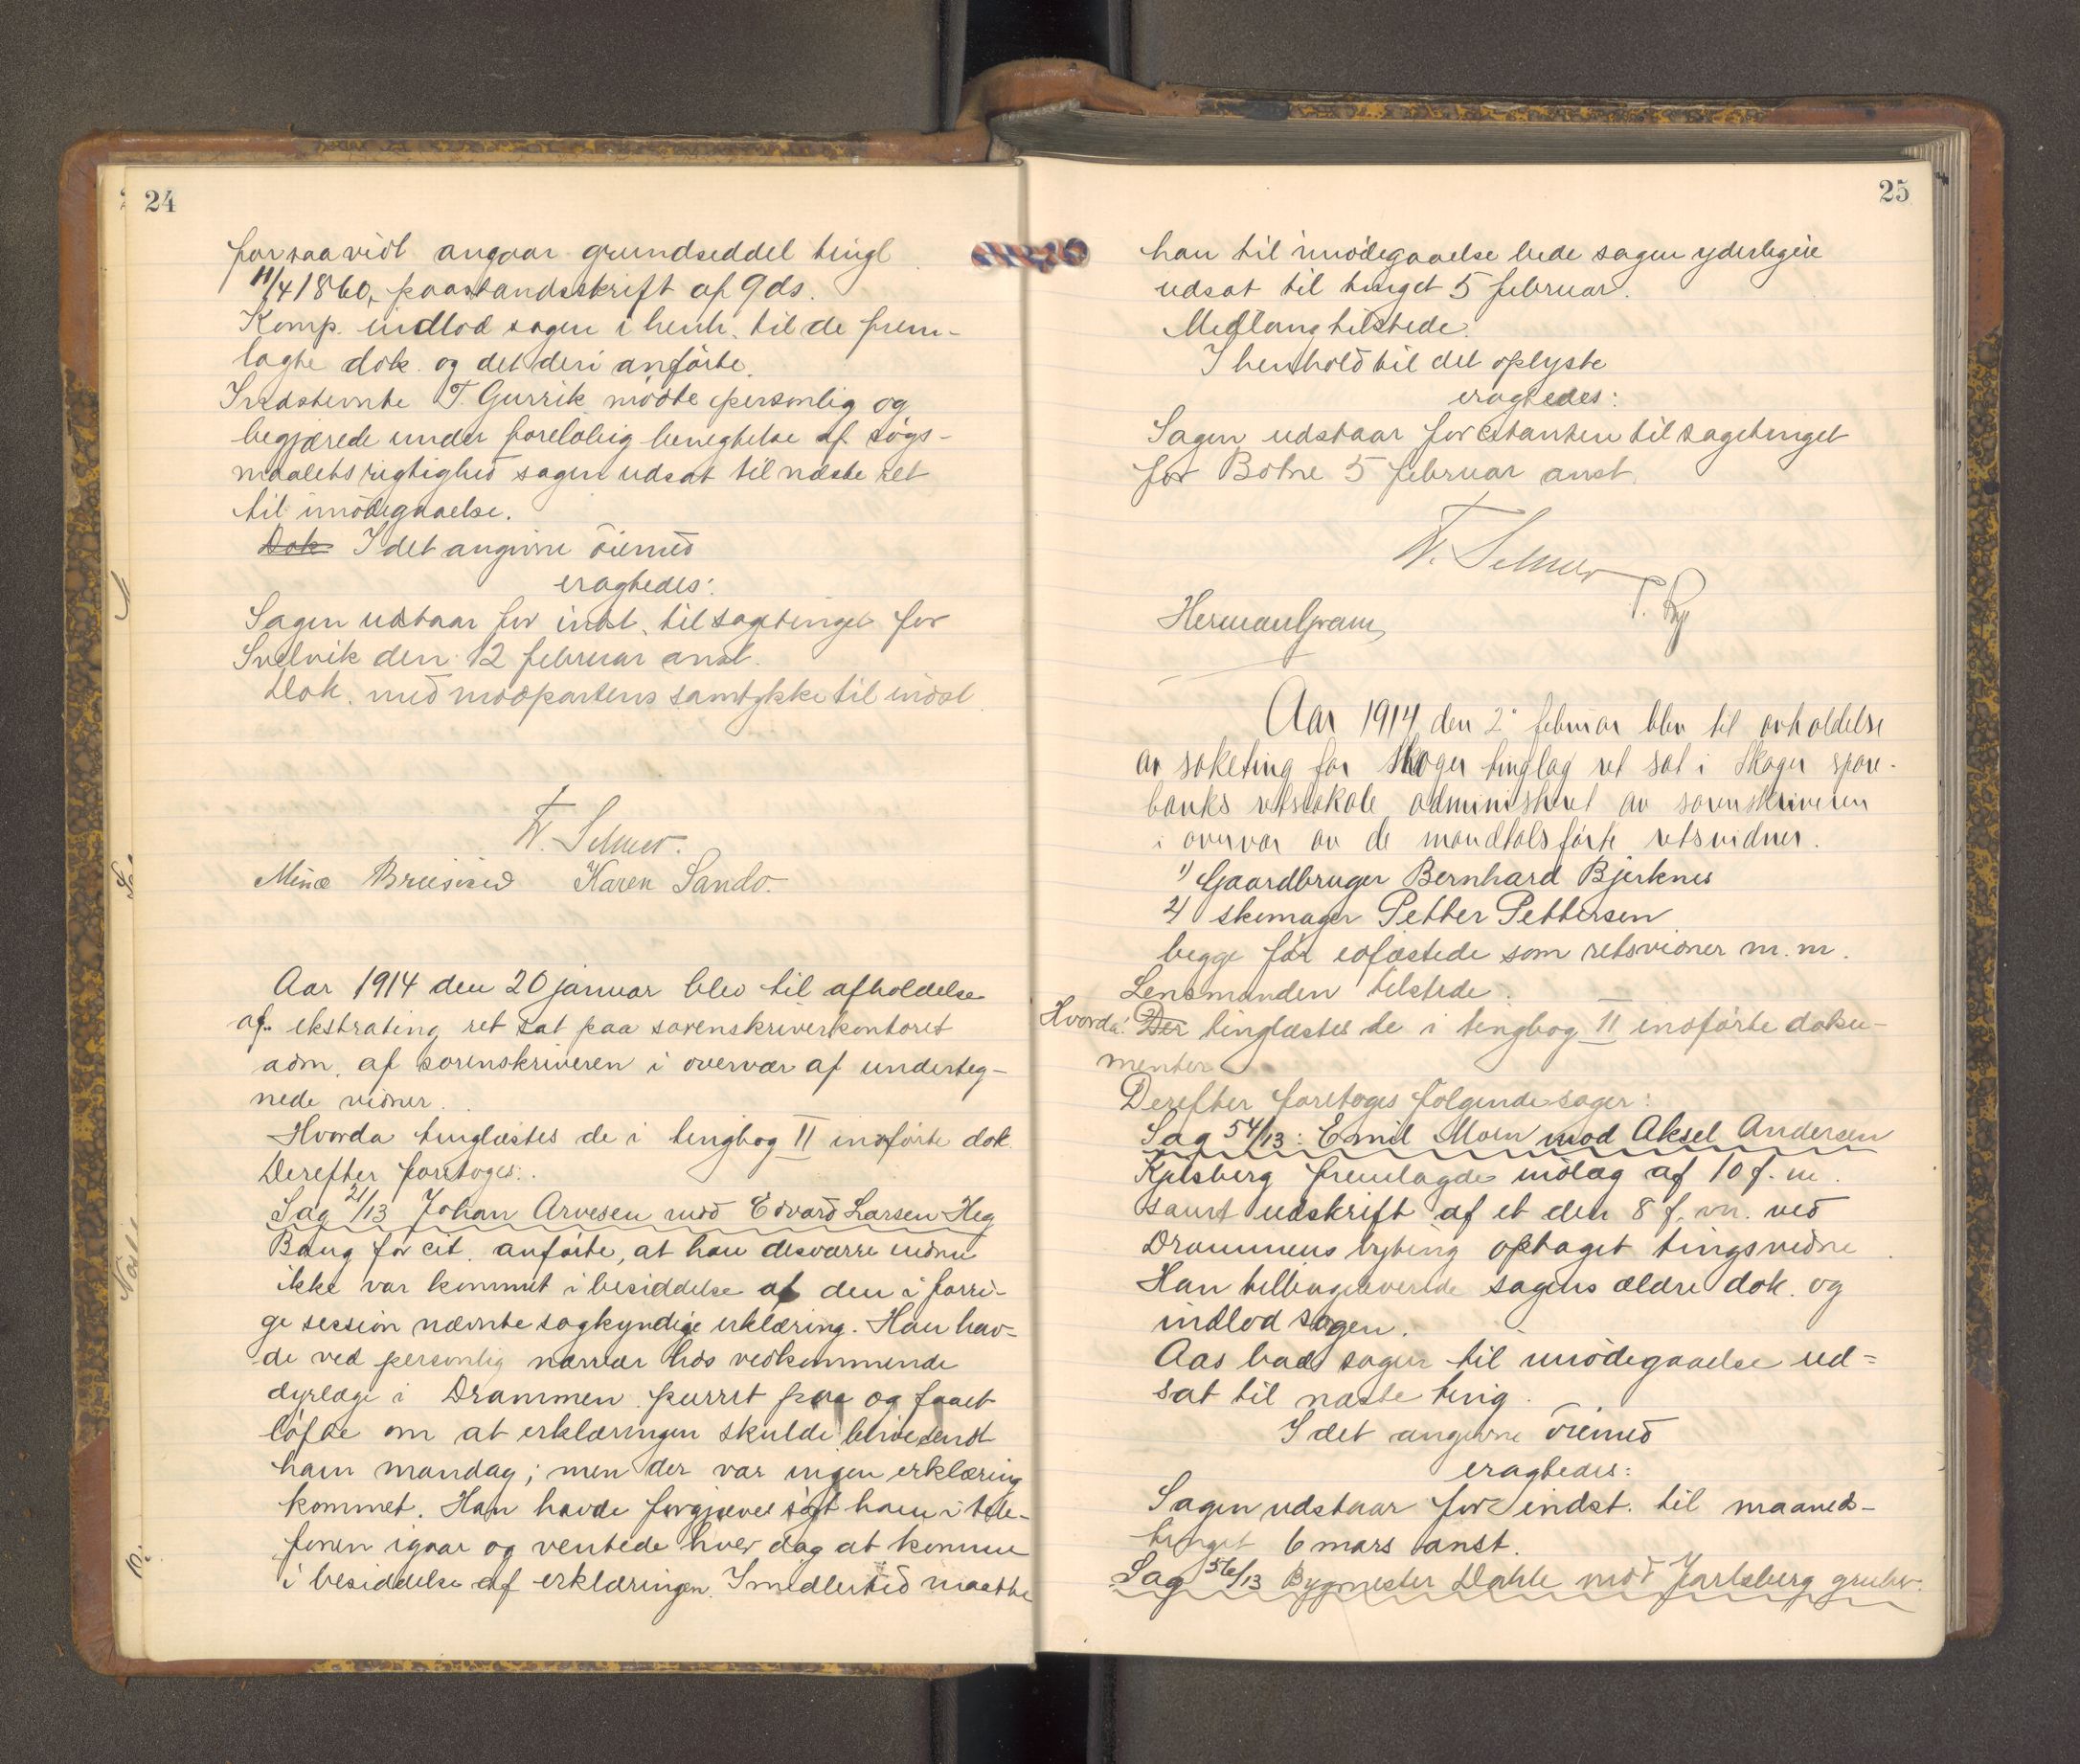 24
forsaavidt angaar grundseddel tingl
11/4 1860, paastandsskrift af 9 ds.
Komp. indlod sagen i henh. til de frem-
lagte dok. og det deri anførte.
Indstevnte T. Gurrik mødte personlig og
begjærede under foreløbig benegtelse af søgs-
maalets rigtighed sagen udsat til næste ret
til imødegaaelse.
Dok I det angivne øiemed
eragtedes:
Sagen udstaar for indst. til sagtinget for
Svelvik den 12 februar anst.
Dok. med modpartens samtykke til indst
W. Selmer.
Karen Sando.
Aar 1914 den 20 januar blev til afholdelse
af ekstrating ret sat paa sorenskriverkontoret
adm. af sorenskriveren i overvær af underteg-
nede vidner.
Hvorda tinglæstes de i tingbog II indførte dok.
Derefter foretoges:
Sag 21/13 Johan Arvesen mod Edvard Larsen Heg
Bang for cit. anførte, at han desværre endnu
ikke var kommet i besiddelse af den i forri-
ge session nævnte sagkyndige erklæring. Han hav-
de ved personlig nærvær hos vedkommende
dyrlæge i Drammen purret paa og faaet
løfte om at erklæringen skulde blive sendt
ham mandag; men der var ingen erklæring
kommet. Han havde forgjæves søgt ham i tele-
fonen igaar og ventede hver dag at komme
i besiddelse af erklæringen. Imedlertid maatte
25
han til imødegaaelse bede sagen yderligere
udsat til tinget 5 februar.
Medlang tilstede.
I henhold til det oplyste
eragtedes:
Sagen udstaar for citanten til sagetinget
for Botne 5 februar anst.
W. Selmer
Herman Gram
Aar 1914 den 2. februar blev til avholdelse
av saketing for Skoger tinglag ret sat i Skoger spare-
banks retslokale administreret av sorenskriveren
i overvær av de mandtalsførte retsvidner.
1) Gaardbruger Bernhard Bjerknes
2) skomager Petter Pettersen
begge før edfæstede som retsvidner m. m.
Lensmanden tilstede.
Hvorda: Der tinglæstes de i tingbog II indførte doku-
menter
Derefter foretoges følgende sager:
Sag 54/13: Emil Moen mod Aksel Andersen
Kjelsberg fremlagde indlæg af 10 f. m.
samt udskrift af et den 8 f. m. ved
Drammens byting optaget tingsvidne.
Han tilbageleverede sagens ældre dok. og
indlod sagen.
Aas bad sagen til imødegaaelse ud-
sat til næste ting.
I det angivne øiemed
eragtedes:
Sagen udstaar for indst. til maaneds-
tinget 6 mars anst.
Sag 56/13 Bygmester Dahle mod Jarlsberg gruber.